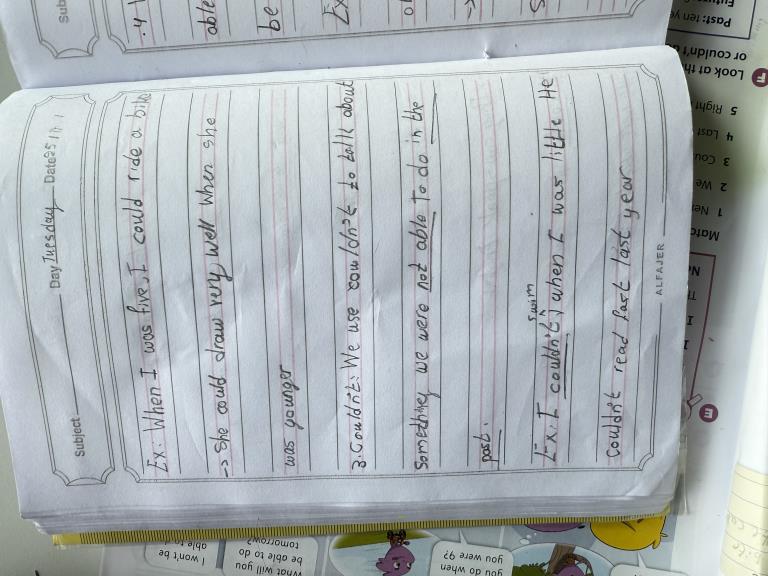 Subject Day Tuesday Date 25 / 11 /
Ex: When I was five, I could ride a bike
-> She could draw very well when she
was younger
3. Couldn't: We use couldn't to talk about
something we were not able to do in the
past.
Ex: I couldn't swim, when I was little He
couldn't read fast last year
ALFAJER
Sub
.4
able
be
Ex
Past: ten ye
Look at th
or couldn't
5 Right
4 Last
3 Cou
2 We
1 Ner
Matc
F
E
I won't be
able to
What will you
be able to do
tomorrow?
you do when
you were 9?